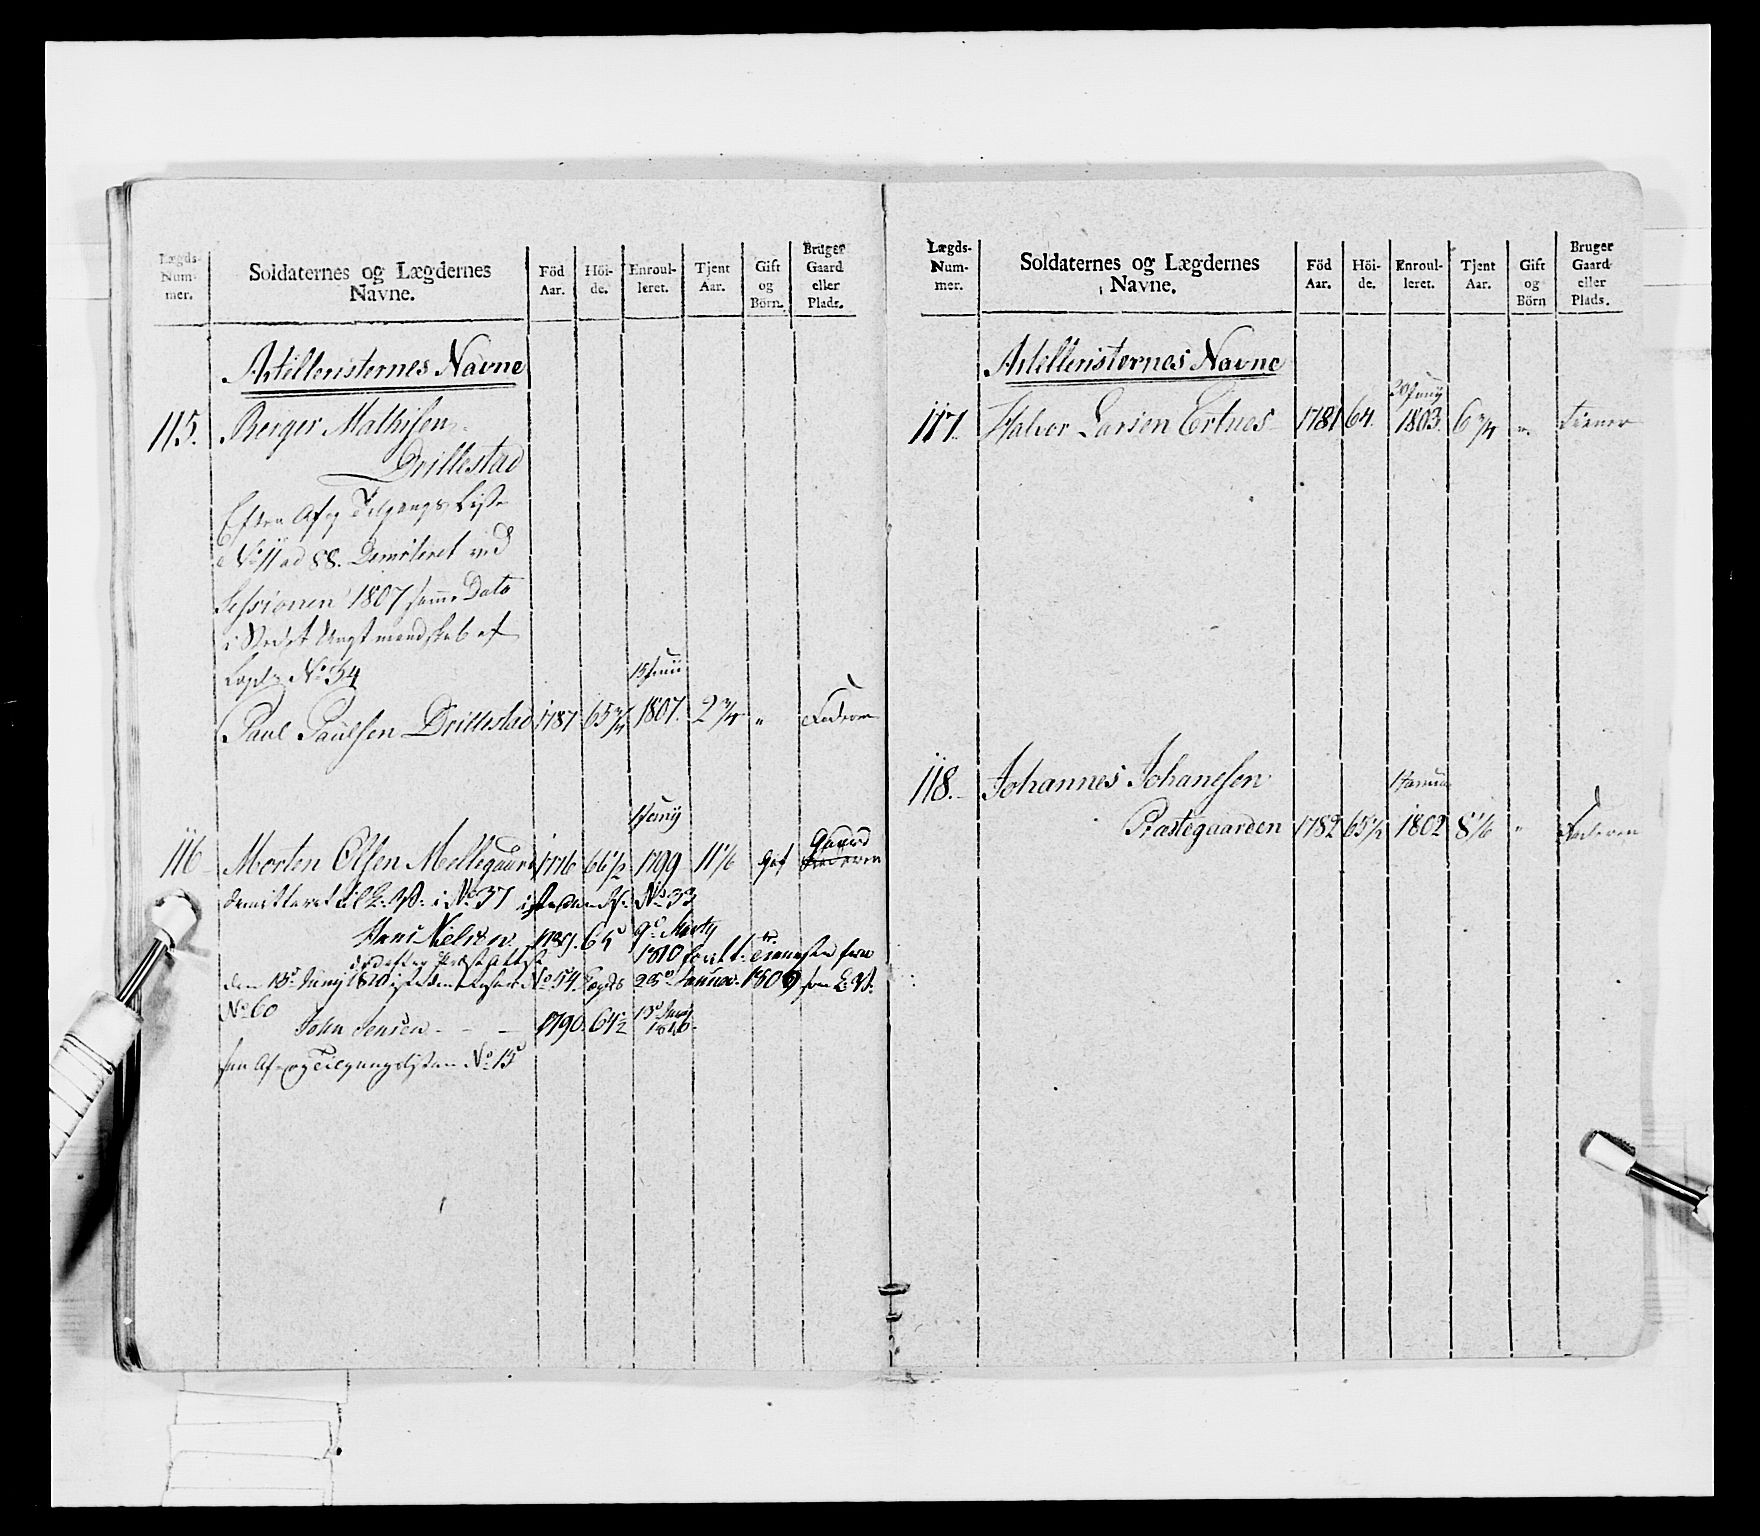 Lægds-Num-mer. Soldaternes og Lægdernes Navne. Föd Aar. Höi-de. Enroul-leret. Tjent Aar. Gift og Börn. Bruger Gaard eller Plads.
Artilleristernes Navne
115. Berger Mathisen
Drillestad
Efter Af og Tilgangs Liste
No 11 ad 88. Demiteret ved
Sessionen 1807 samme Dato
i Stedet Ungt mandskab af
No 34
15 Junii
Paul Paulsen Drillestad 1787 65 3/4 1807. 2 3/4 "
1 Junij
116 Morten Olsen Mellegaard 1776 66 1/2 1799 11 1/6 Gift Gaard
demitteret til L: V: i No 37 No 33
Hans Nielsen 1789. 65 9de Marty
1810
den 13de Junij 1810 No 54 23de Januar 1809 som L: V:
No 60
John Jensen - - 1790 64 1/2 13de Junij 1810.
see Af- og Tilgangslisten No 15
Lægds-Num-mer. Soldaternes og Lægdernes Navne. Föd Aar. Höi-de. Enroul-leret. Tjent Aar. Gift og Börn Bruger Gaard eller Plads.
Artilleristernes Navne
20 Junij
117. Halvor Larsen Ertnes 1781 64. 1803. 6 3/4 " Tiener
118. Johannes Johanesen 1 Januar
Præstegaarden 1782 65 1/2 1802 8 1/6 " Faderen